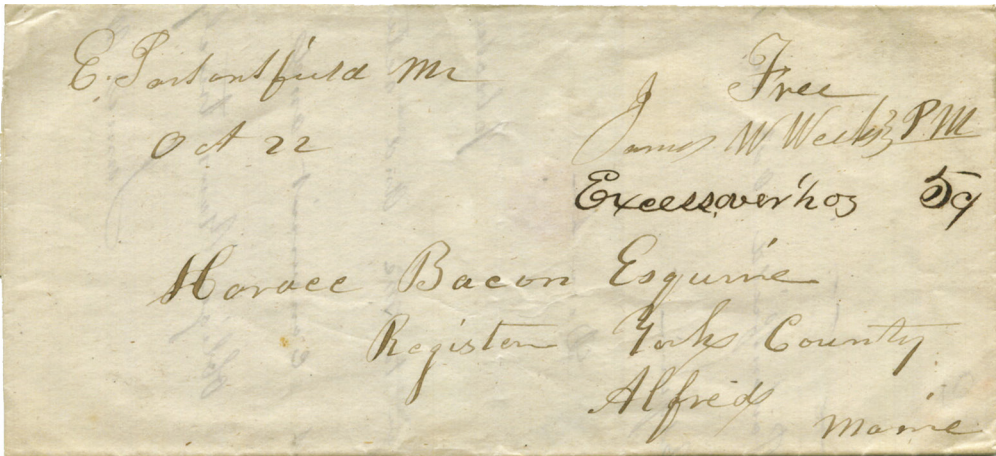 E. Parsonsfield Me
Oct 22
Free
James W Weeks PM
Excess over ½ oz 5c
Horace Bacon Esquire
Register York County
Alfred
Maine